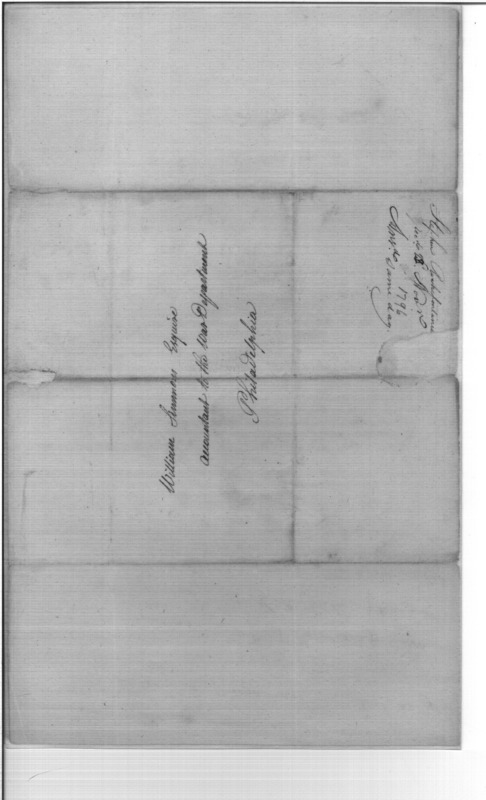 William Simmons Esquire
accountant to the War Department
Philadelphia
1796
Same day